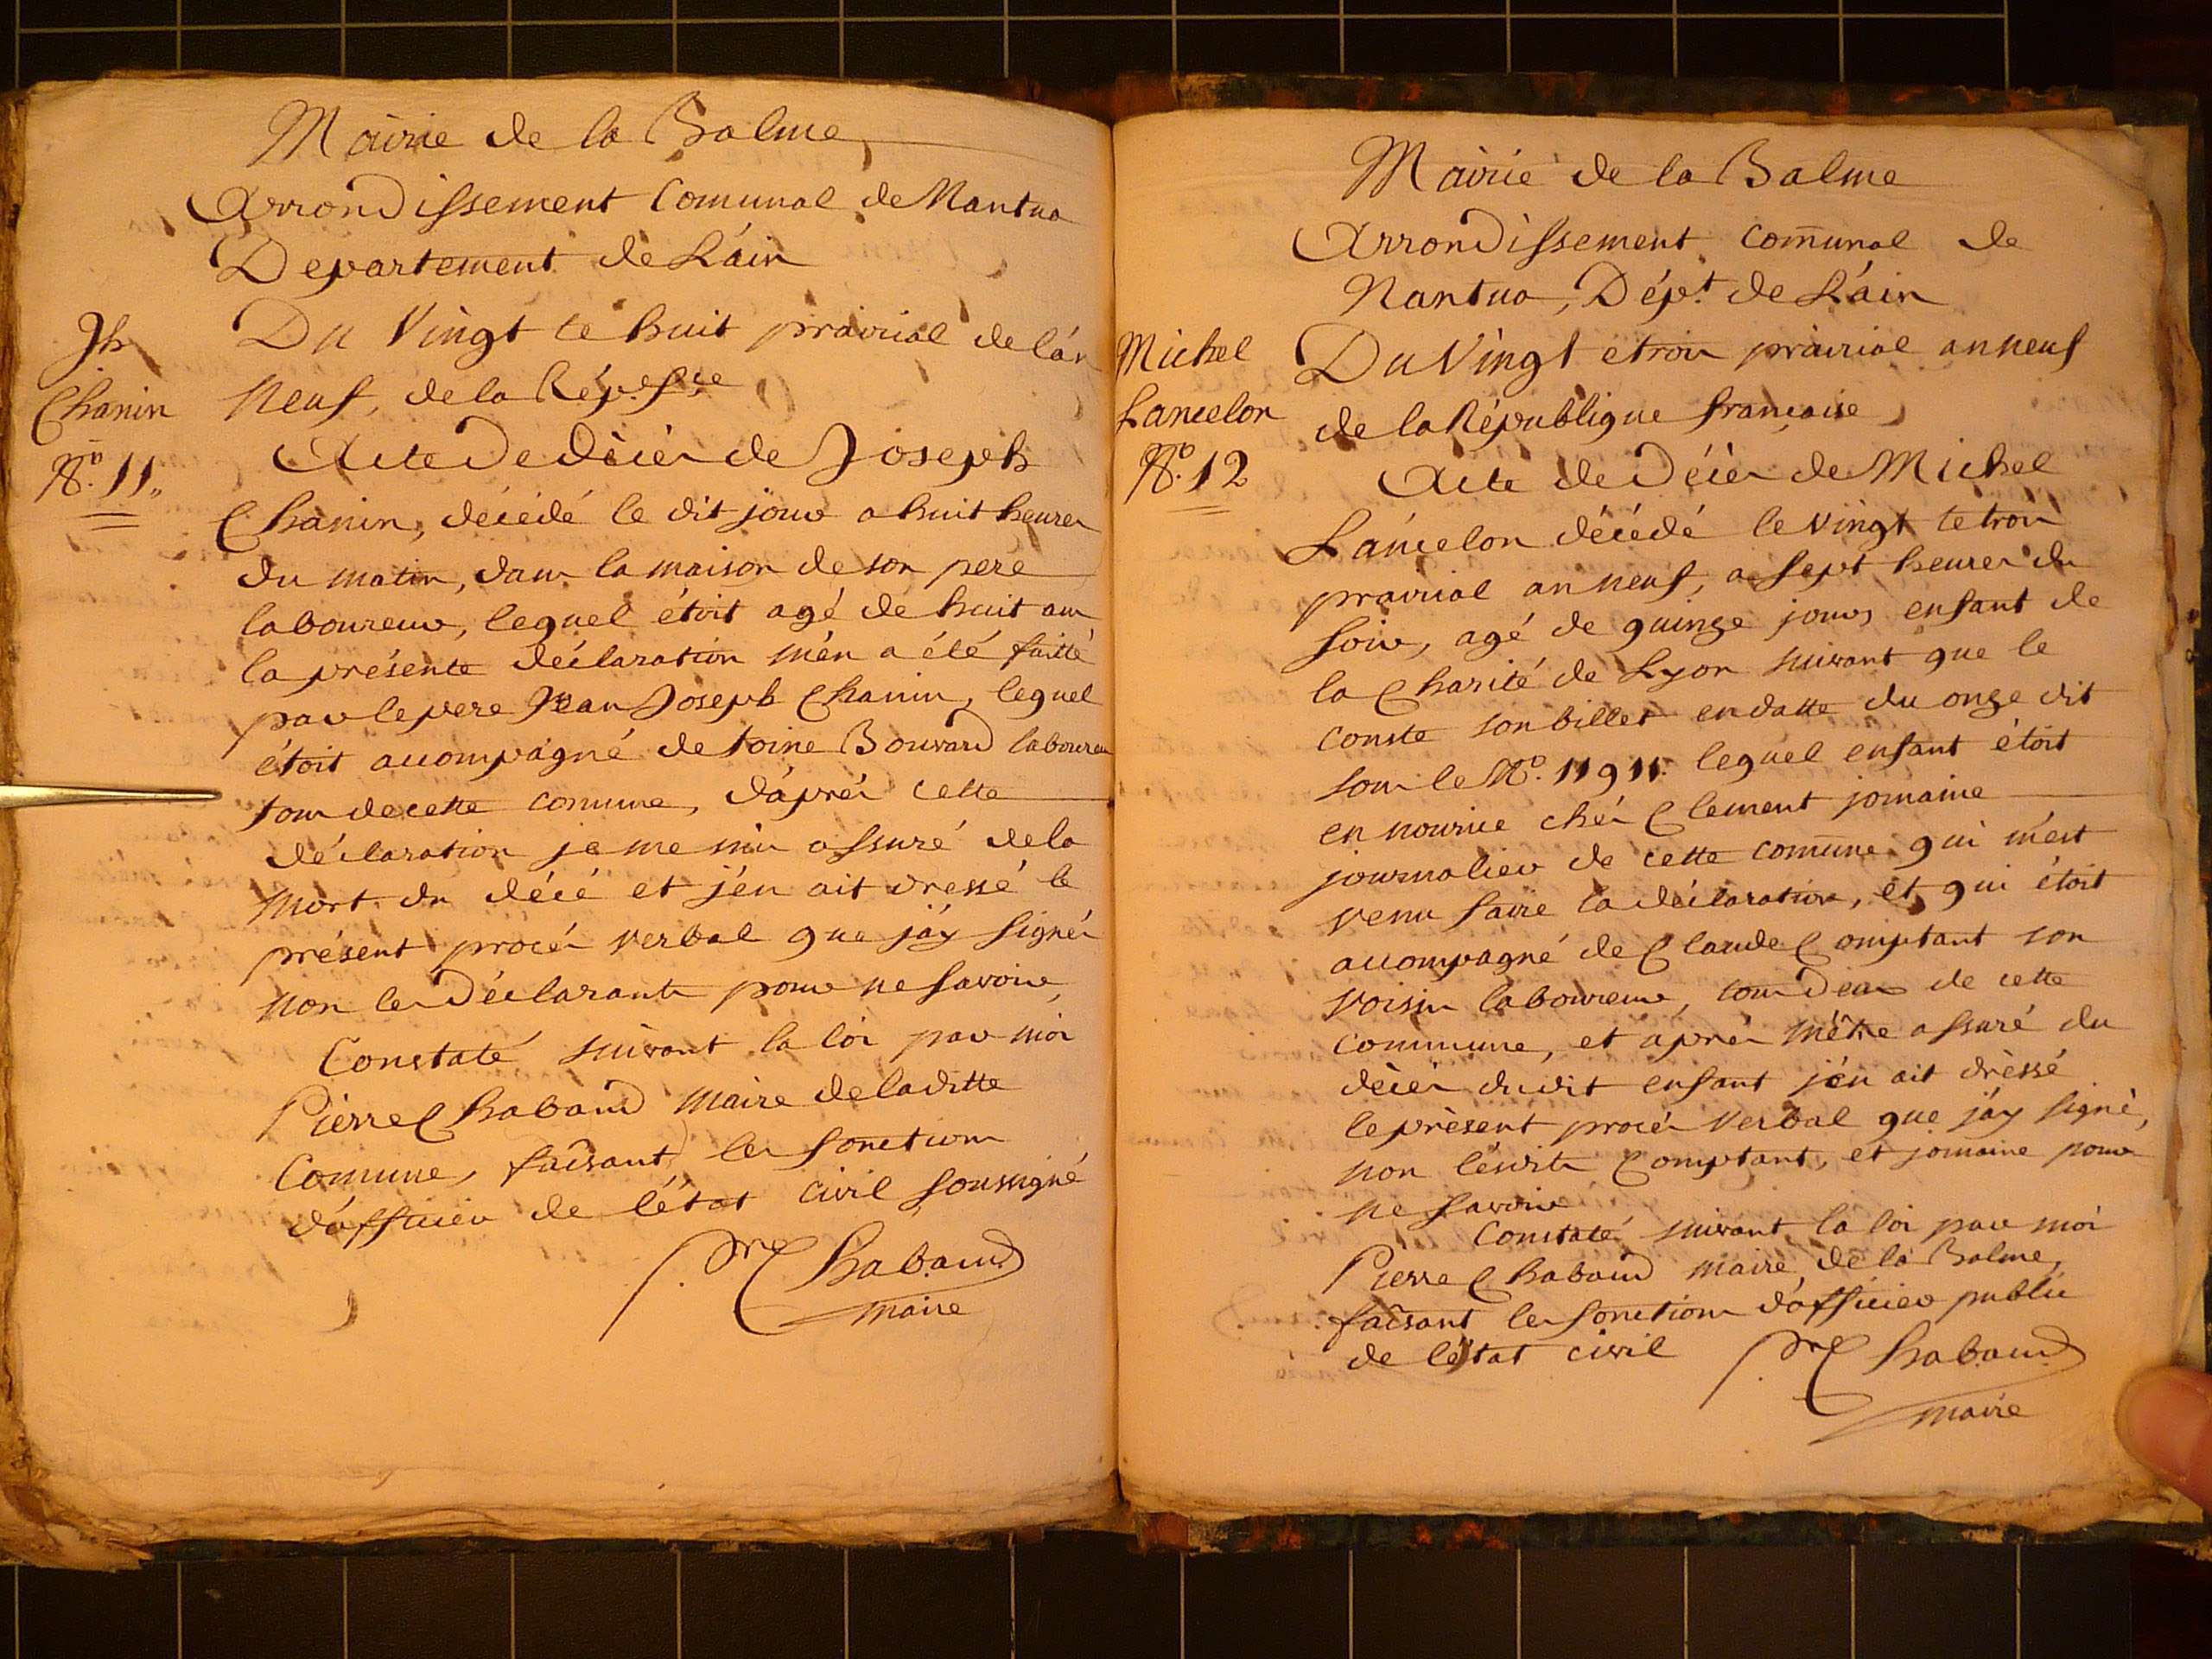 Mairie de la Balme
Arrondissement Comunal de Nantua
Departement de L'ain
Jh
Chanin
No. 11
Du Vingt te huit prairial de l'an
neuf, de la Rép. fse
Acte de décès de Joseph
Chanin, décédé le dit jour a huit heures
du matin, dans la maison de son pere
laboureur, lequel étoit agé de huit ans
la présente déclaration m'en a été faitte
par le pere Jean Joseph Chanin, lequel
étoit accompagné de toine Bouvard laboureur
tous de cette comune, d'après cette
déclaration je me suis assuré de la
mort du décé et j'en ait dressé le
présent procès verbal que j'ay signés
non les déclarants pour ne savoir,
Constaté suivant la loi par moi
Pierre Chabaud maire de laditte
Comune, faisant les fonctions
d'officier de l'état civil soussigné
P. re Chabaud
maire
Mairie de la Balme
Arrondissement comunal de
Nantua, Dépt. de L'ain
Michel
Lancelon
No. 12
Du Vingt et trois prairial an neuf
de la République francaise
Acte de Décès de Michel
Lancelon décédé le vingt te trois
prairial an neuf, a sept heures du
soir, agé de quinze jours enfant de
la Charité de Lyon suivant que le
conste son billet en datte du onze dit
sous le No. 11911. lequel enfant étoit
en nourice chés Clement jomaine
journalier de cette comune qui m'est
venu faire la déclaration, et qui étoit
accompagné de Claude Comptant son
voisin laboureur, tous deux de cette
commune, et après m'être assuré du
décès du dit enfant j'en ait dressé
le présent procés verbal que j'ay signé,
non lesdits Comptant, et jomaine pour
ne savoir
Constaté suivant la loi par moi
Pierre Chabaud maire de la Balme,
faisant les fonctions d'officier public
de l'état civil P. re Chabaud
maire